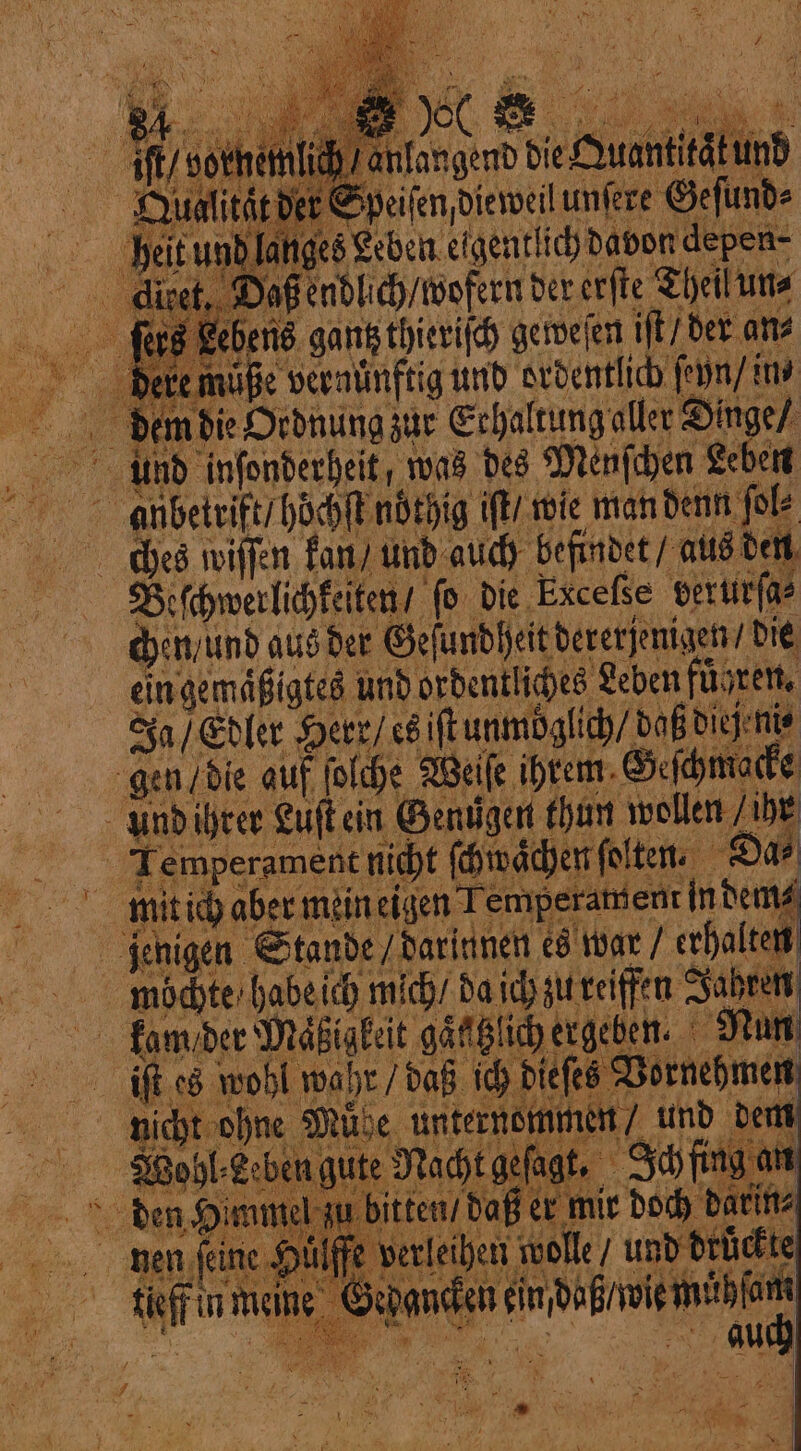 84 )o(
iſt/ vornemlich/ anlangend die Quantitaͤt und
Qualitaͤt der Speiſen, dieweil unſere Geſund⸗
heit und langes Leben eigentlich davon depen-
diret. Daß endlich/ wofern der erſte Theil un⸗
ſers Lebens gantz thieriſch geweſen iſt/ der an⸗
dere muͤße vernuͤnftig und ordentlich ſeyn/ in⸗
dem die Ordnung zur Erhaltung aller Dinge/
und inſonderheit, was des Menſchen Leben
anbetrift/ hoͤchſt noͤthig iſt/ wie man denn ſol⸗
ches wiſſen kan/ und auch befindet/ aus den
Beſchwerlichkeiten/ ſo die Exceſse verurſa⸗
chen/ und aus der Geſundheit dererjenigen/ die
ein gemaͤßigtes und ordentliches Leben fuͤhren.
Ja/ Edler Herr/ es iſt unmoͤglich/ daß diejeni⸗
gen/ die auf ſolche Weiſe ihrem Geſchmacke
und ihrer Luſt ein Genuͤgen thun wollen/ ihr
Temperament nicht ſchwaͤchen ſolten. Da⸗
mit ich aber mein eigen Temperament in dem⸗
jenigen Stande/ darinnen es war/ erhalten
moͤchte/ habe ich mich/ da ich zu reiffen Jahren
kam/ der Maͤßigkeit gaͤntzlich ergeben. Nun
iſt es wohl wahr/ daß ich dieſes Vornehmen
nicht ohne Muͤhe unternommen/ und dem
Wohl⸗Leben gute Nacht geſagt. Ich fing an
den Himmel zu bitten/ daß er mir doch darin⸗
nen ſeine Huͤlffe verleihen wolle/ und druͤckte
tieff in meine Gedancken ein, daß/ wie muͤhſam
auch